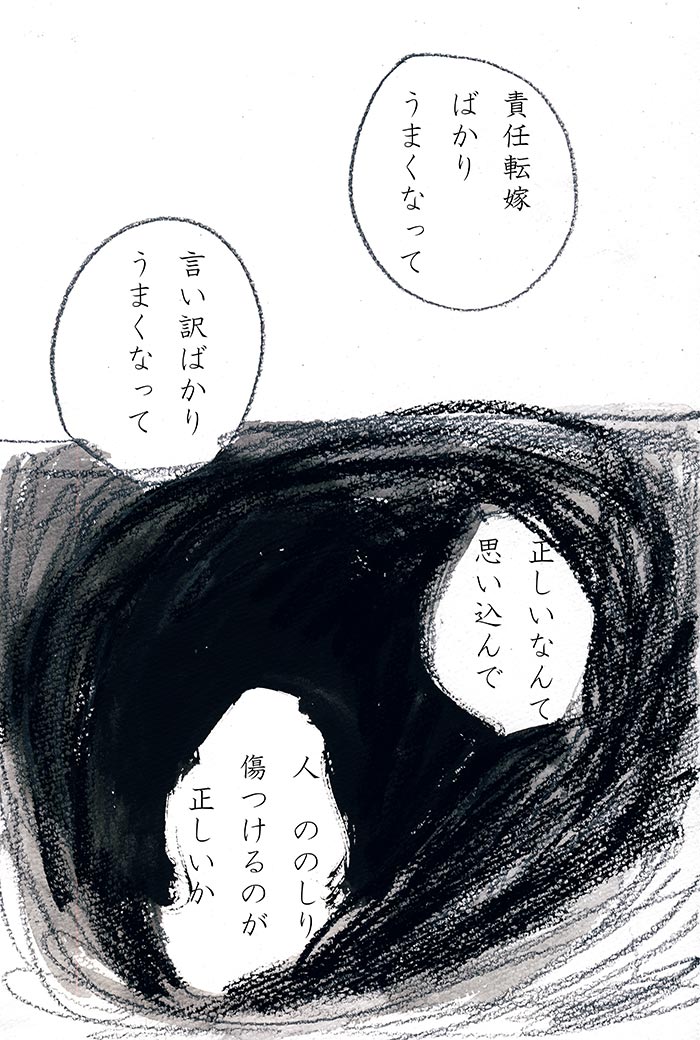 責任転嫁
ばかり
うまくなって
言い訳ばかり
うまくなって
正しいなんて
思い込んで
人　ののしり
傷つけるのが
正しいか